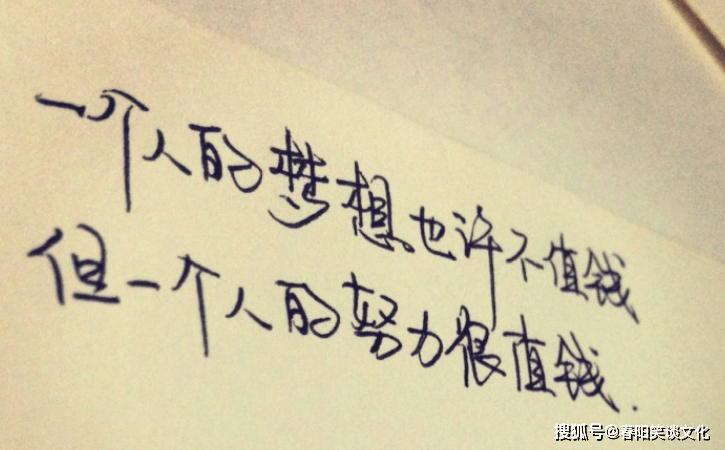 一个人的梦想也许不值钱
但一个人的努力很值钱.
搜狐号@春阳笑谈文化